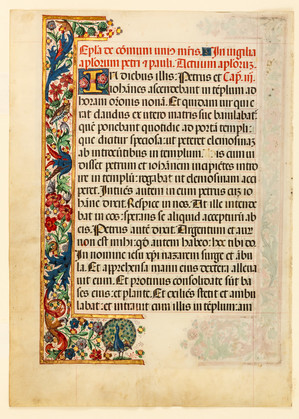 Ep̄la de cōmuni uniꝰ m̄ris. In vigilia
apostolorum petri ⁊ pauli. Actuum aplorum.
In diebus illis: Petrus et Cap. iii.
iohānes ascendebant in tēplum ad
horam orōnis nonā. Et quidam uir qui e
rat claudus ex utero matris sue baiulabat̄:
quē ponebant quotidie ad portā templi:
que dicitur speciosa: ut peteret elemosinam
ab introeūtibus in templum. Is cum ui
disset petrum et iohānem incipiētes introi
re in templū: rogabat ut elemosinam acci
peret. Intuēs autem in eum petrus cū io
hāne dixit. Respice in nos. At ille intende
bat in eos: sperans se aliquid accepturū ab
eis. Petrus autē dixit. Argentum et aur
non est mihi: qḋ autem habeo: hoc tibi do.
In nomine iesu xp̄i nazareni surge et ābu
la. Et apprehensa manu eius dextera alleua
uit eum. Et protinus consolidate sūt ba
ses eius: et plante. Et exiliēs stetit et ambu
labat: et intrauit cum illis in tēplum: am